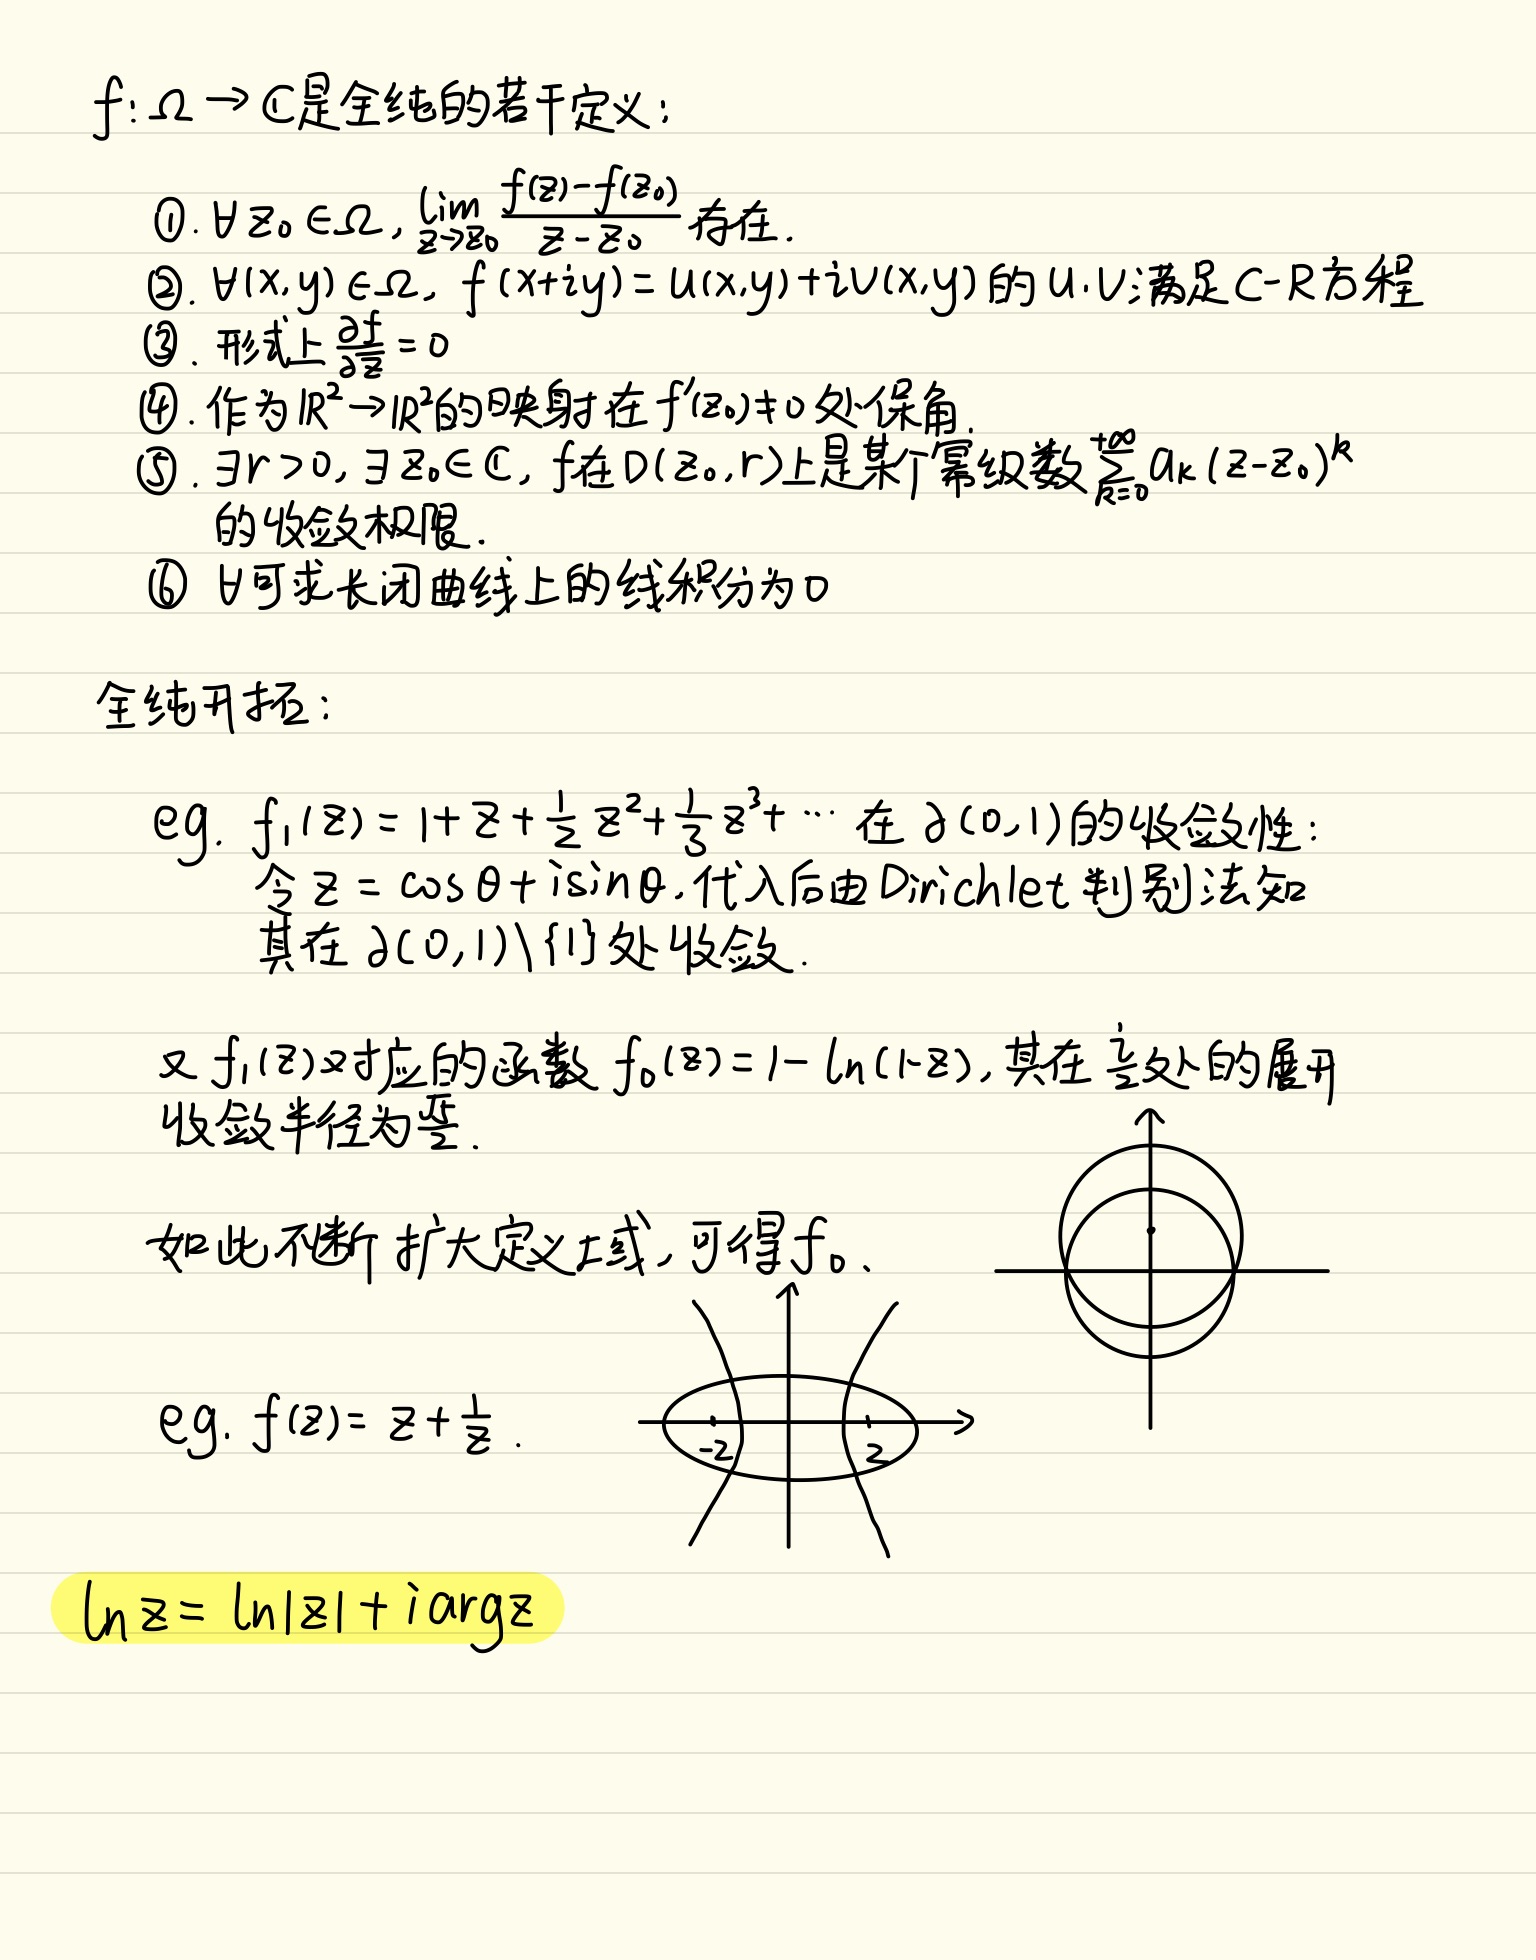 f: Ω → ℂ是全纯的若干定义:
①. ∀ z₀ ∈ Ω, lim_{z→z₀} (f(z)-f(z₀))/(z-z₀) 存在.
②. ∀(x,y) ∈ Ω, f(x+iy) = u(x,y)+iv(x,y) 的 u.v 满足 C-R方程
③. 形式上 ∂f/∂z̄ = 0
④. 作为 ℝ² → ℝ² 的映射在 f'(z₀) ≠ 0 处保角.
⑤. ∃r > 0, ∃ z₀ ∈ ℂ, f在 D(z₀, r)上是某个幂级数 ∑_{k=0}^{+∞} aₖ(z-z₀)^k
的收敛极限.
⑥ ∀可求长闭曲线上的线积分为0
全纯开拓:
eg. f₁(z) = 1 + z + ½ z² + ⅓ z³ + ⋯ 在 ∂(0,1)的收敛性:
令 z = cosθ + isinθ, 代入后由Dirichlet判别法知
其在 ∂(0,1)\{1}处收敛.
又 f₁(z)对应的函数 f₀(z) = 1 - ln(1-z), 其在 i/2 处的展开
收敛半径为 √5/2.
如此不断扩大定义域, 可得f₀.
eg. f(z) = z + 1/z .
-2 2
ln z = ln|z| + i arg z